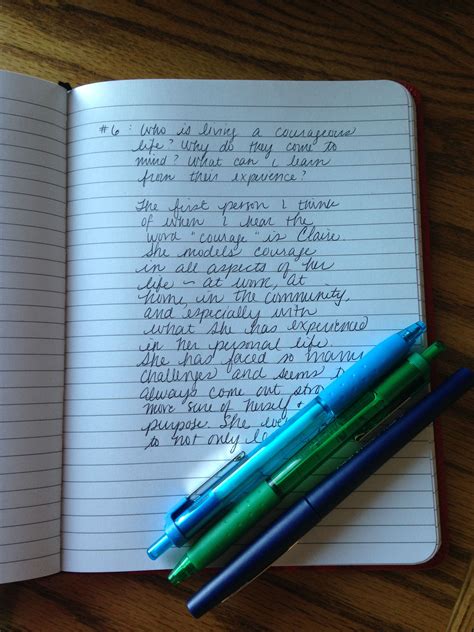 #6: Who is living a courageous
life? Why do they come to
mind? What can I learn
from their experience?
The first person I think
of when I hear the
word "courage" is Claire.
She models courage
in all aspects of her
life - at work, at
home, in the community,
and especially with
what she has experienced
in her personal life.
She has faced so many
challenges and seems
always come out
more sure of herself +
purpose. She
to not only